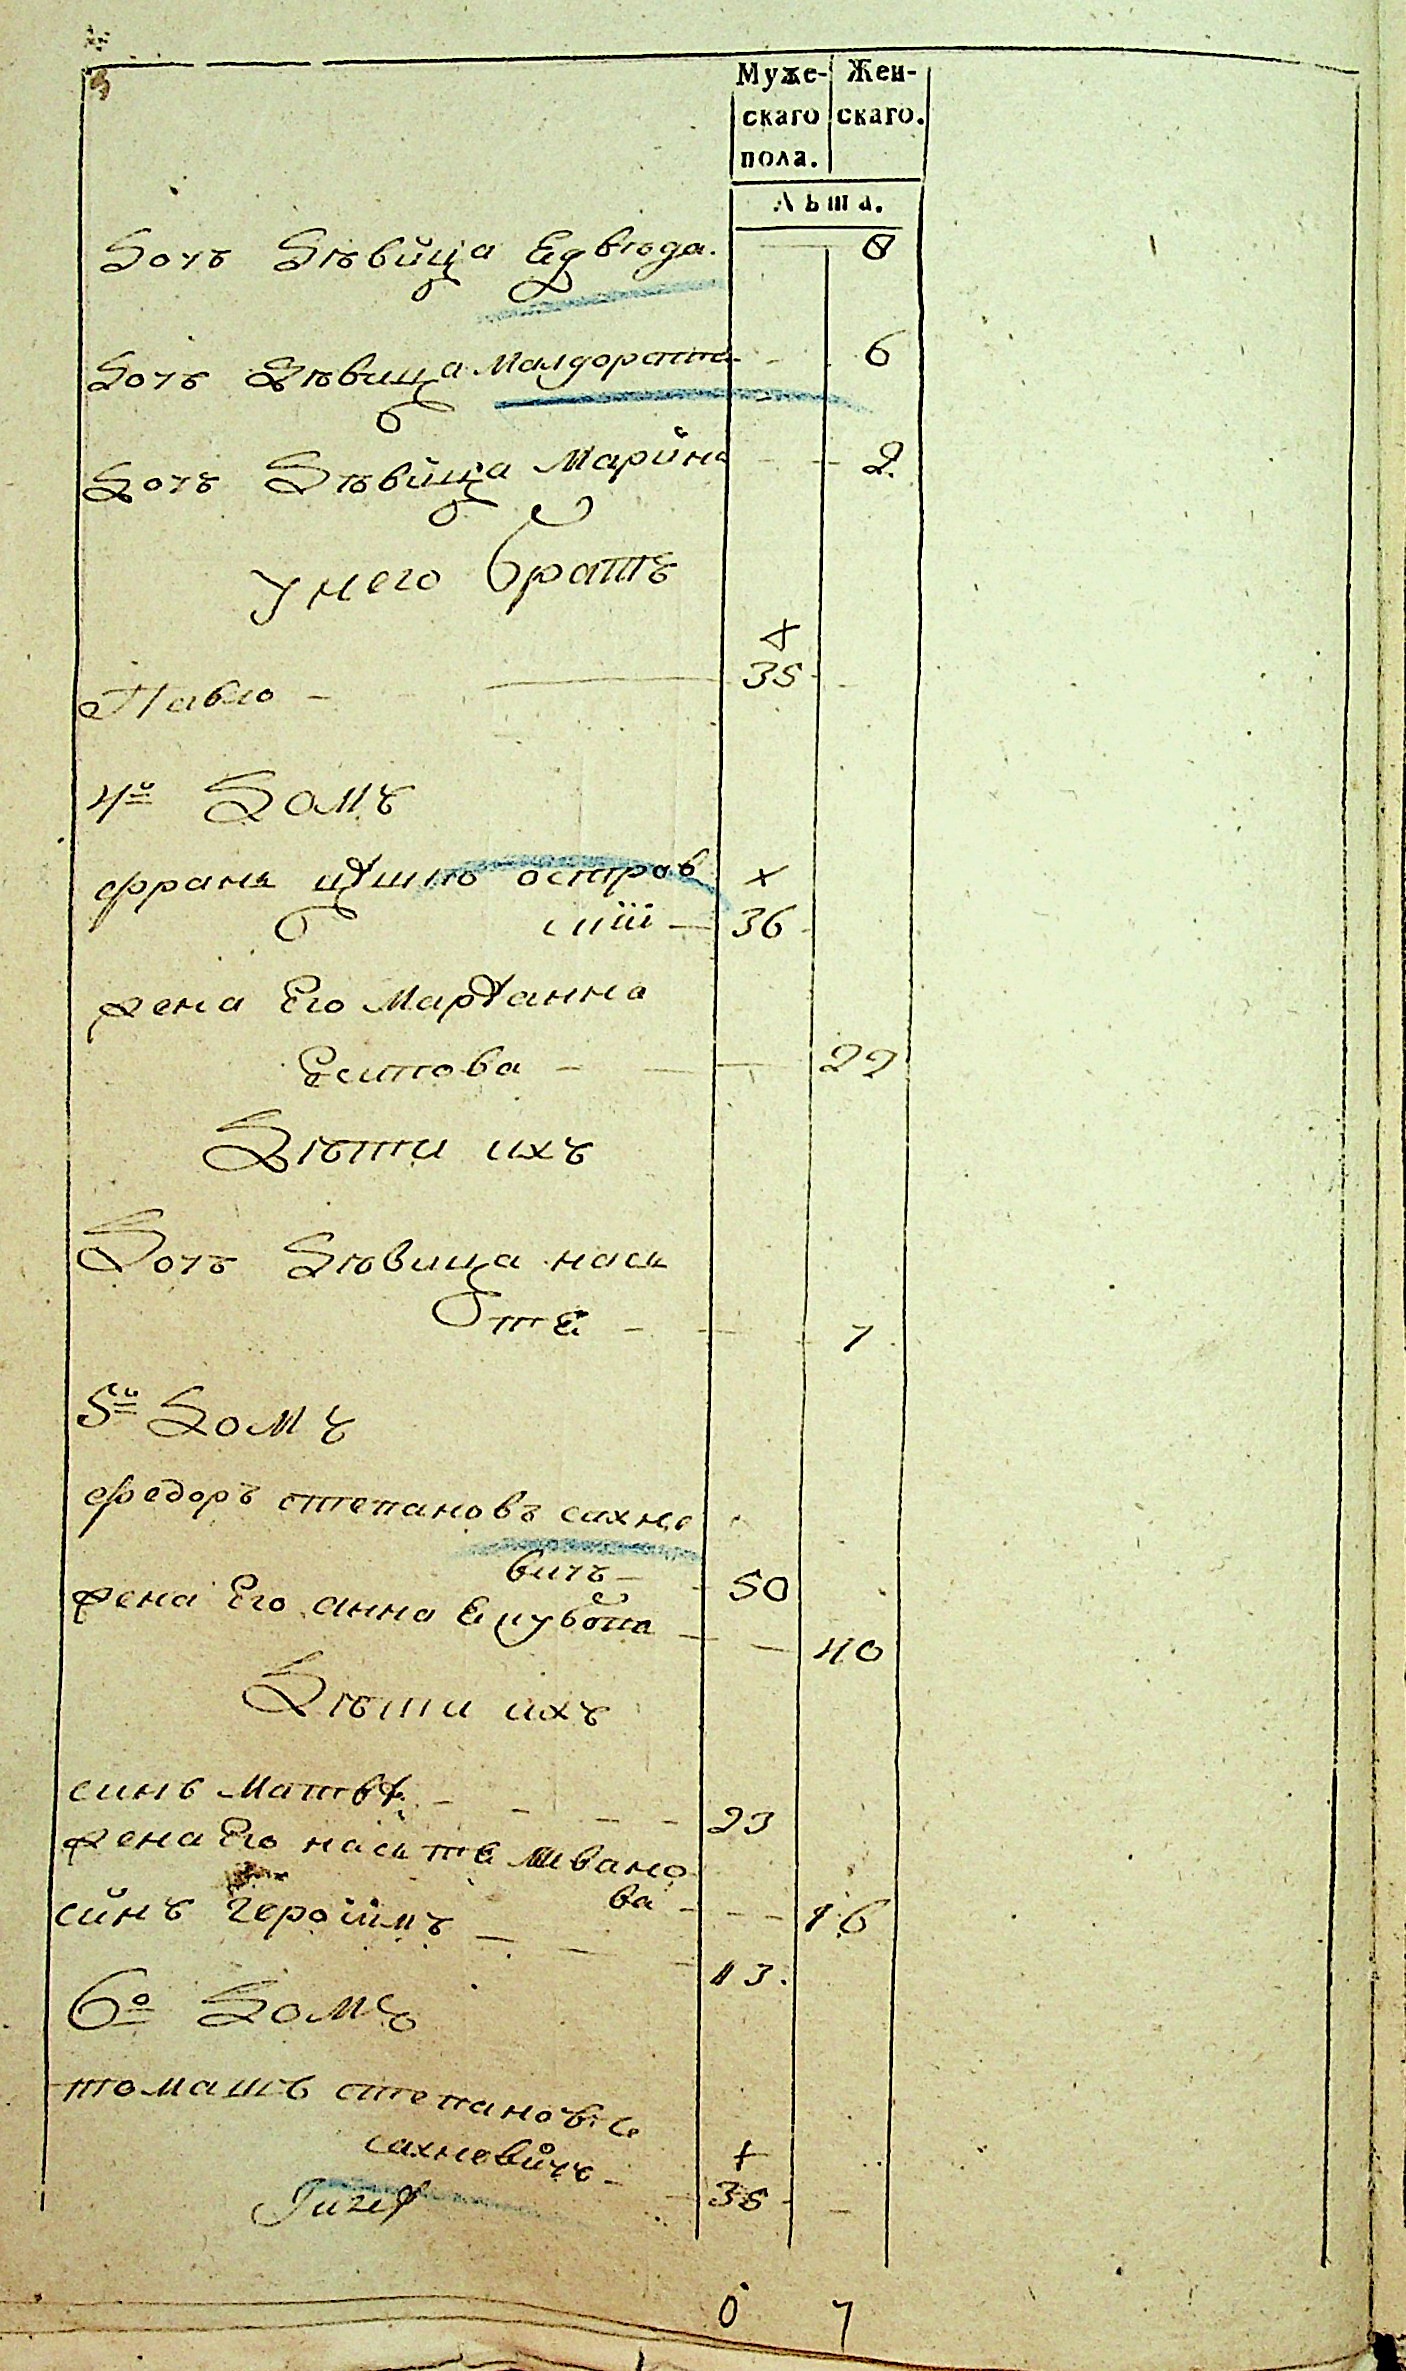 Муже- Жен-
скаго скаго.
пола.
Лѣта.
Дочъ Дѣвйца Едвюда. 8
Дочъ Дѣвица Малдората 6
Дочъ Дѣвйца Марйна 2.
У него братъ
х
Павло 35
4й домъ
Франц островъ х
скій 36
жена Его Марянна
Есипова 22
Дѣти ихъ
Дочъ Дѣвица наск
тЕ 7
5й домъ
Федоръ степановъ сахно
вичъ 50
жена Его анна 40
Дѣти ихъ
синъ Матвѣ 23
жена Его наскте Ивано
ва 16
сйнъ Героймъ 13.
6й домъ
томашъ степановъ
сахновйчъ х
Іизеф 36
6 7